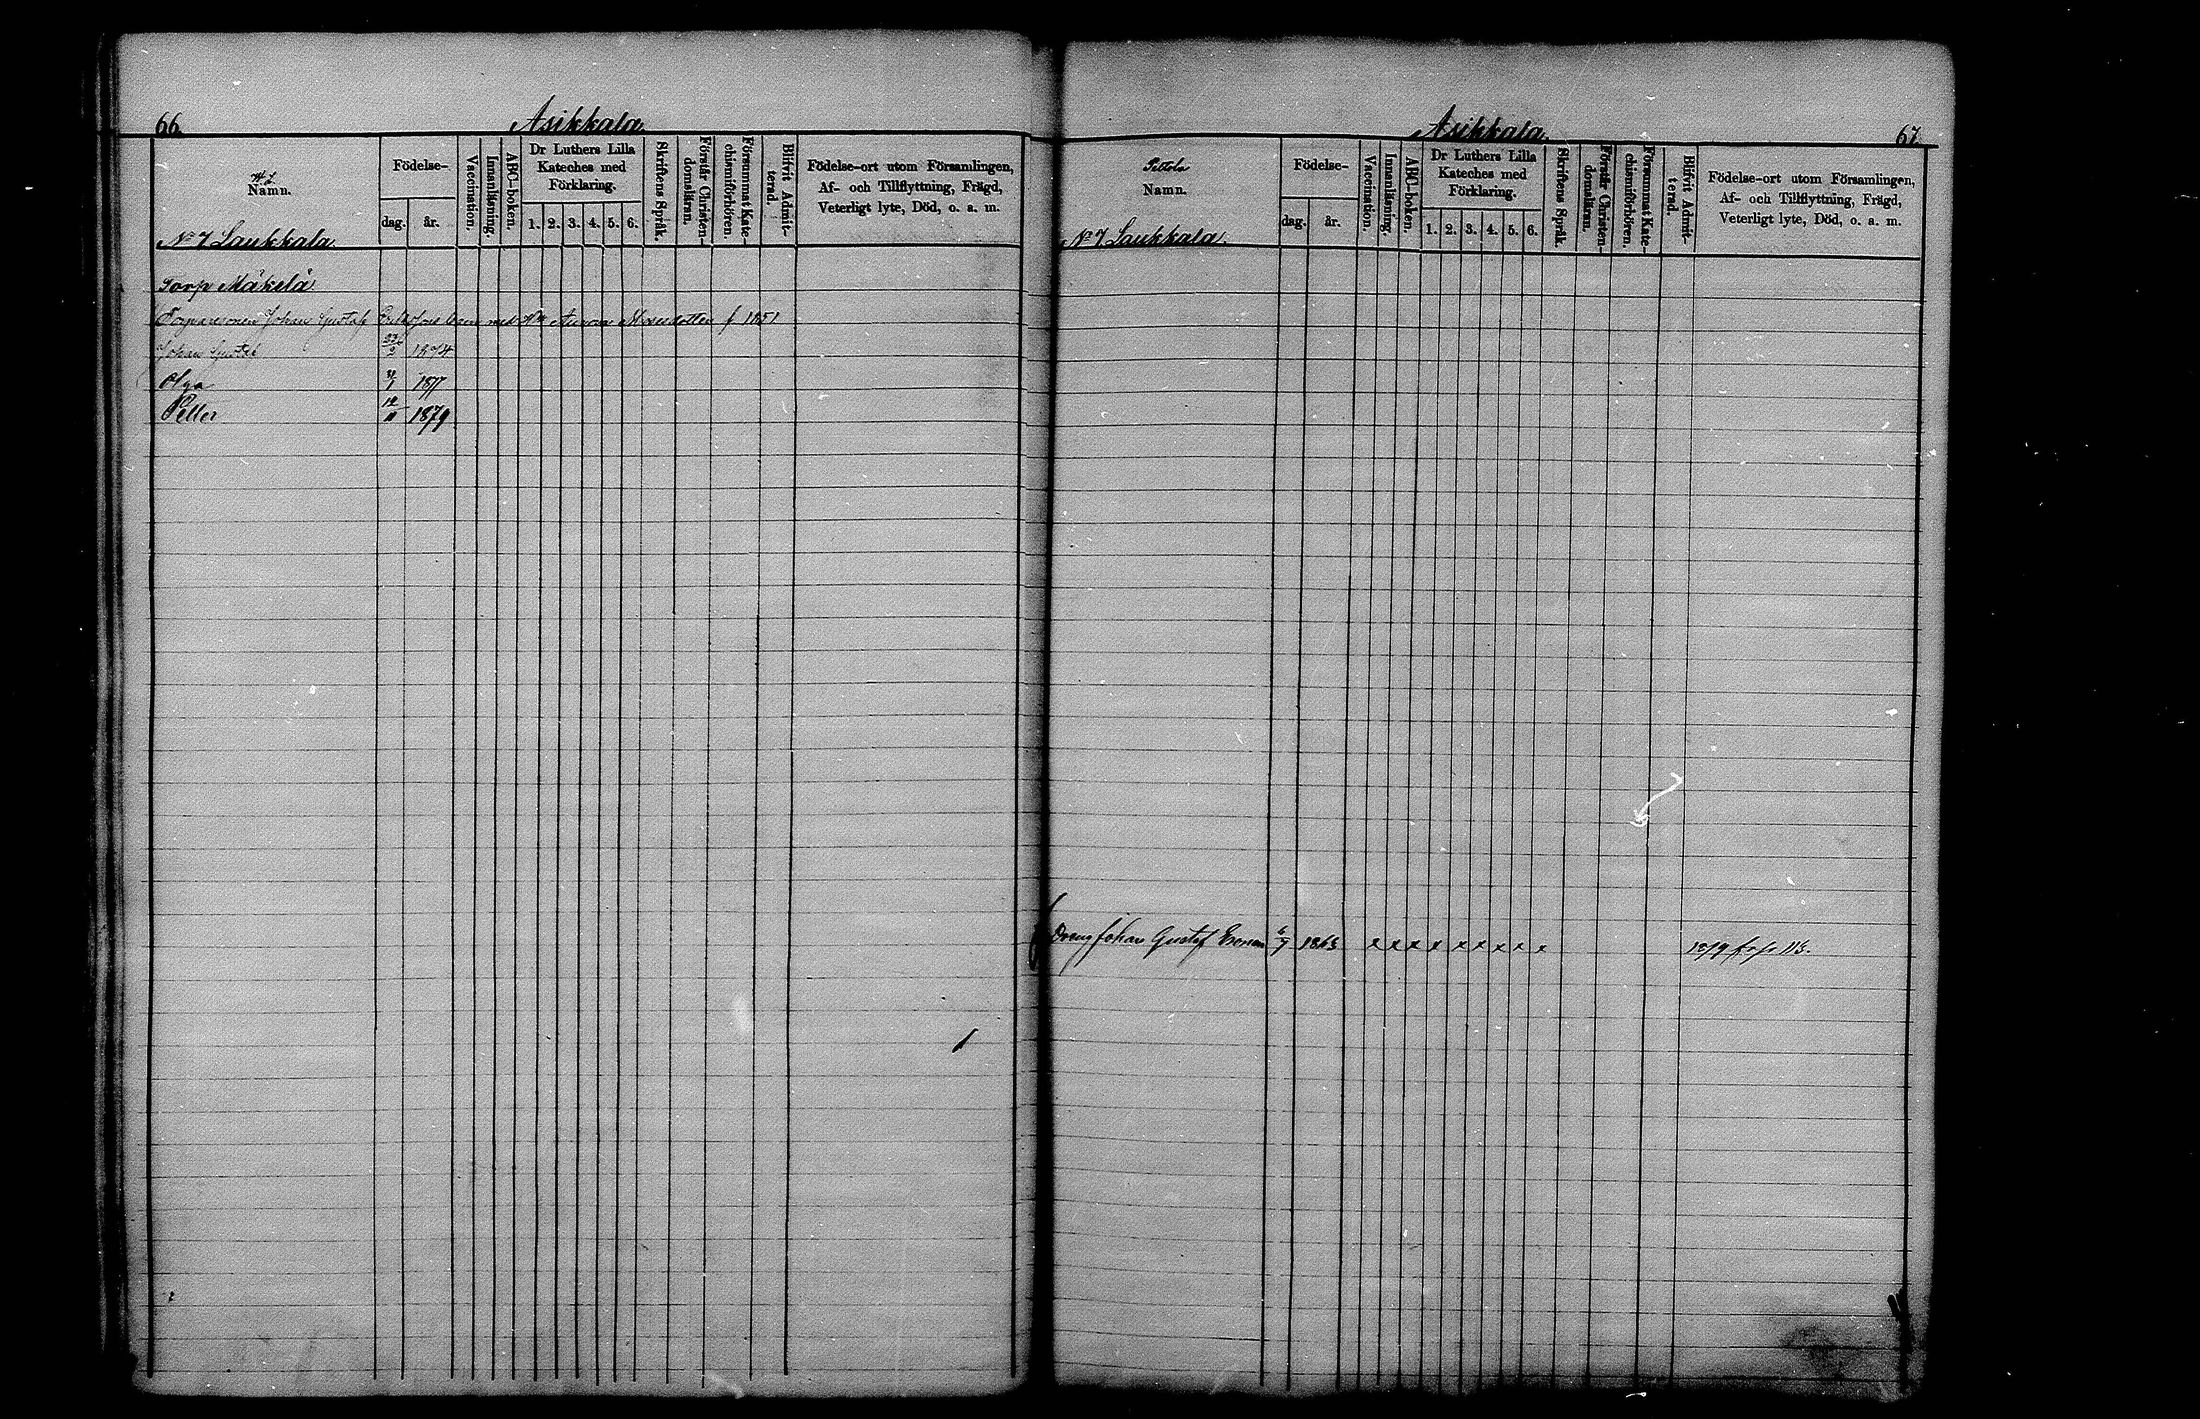 66.
Asikkala
Namn.
Födelse-
dag. år.
Vaccination.
Innanläsning.
ABC-boken.
Dr Luthers Lilla
Kateches med
Förklaring.
1. 2. 3. 4. 5. 6.
Skriftens Språk.
Förstår Christen-
domsläran.
Försummat Kate-
chismiförhören.
Blifvit Admit-
terad.
Födelse-ort utom Församlingen,
Af- och Tillflyttning, Frägd,
Veterligt lyte, Död, o. a. m.
No 7 Laukkala
Torp Mäkelä
Torparesonen Johan Gustaf barn med Aurora f 1851
Johan Gustaf 2 1874
Olga 31/1 1877
Petter 12/11 1879
Asikkala
67.
Pettola
Namn.
Födelse-
dag. år.
Vaccination.
Innanläsning.
ABC-boken.
Dr Luthers Lilla
Kateches med
Förklaring.
1. 2. 3. 4. 5. 6.
Skriftens Språk.
Förstår Christen-
domsläran.
Försummat Kate-
chismiförhören.
Blifvit Admit-
terad.
Födelse-ort utom Församlingen,
Af- och Tillflyttning, Frägd,
Veterligt lyte, Död, o. a. m.
No 7 Laukkala
Dreng Johan Gustaf 6/7 1863 x x x x x x x x x 1879 fr. p. 113.